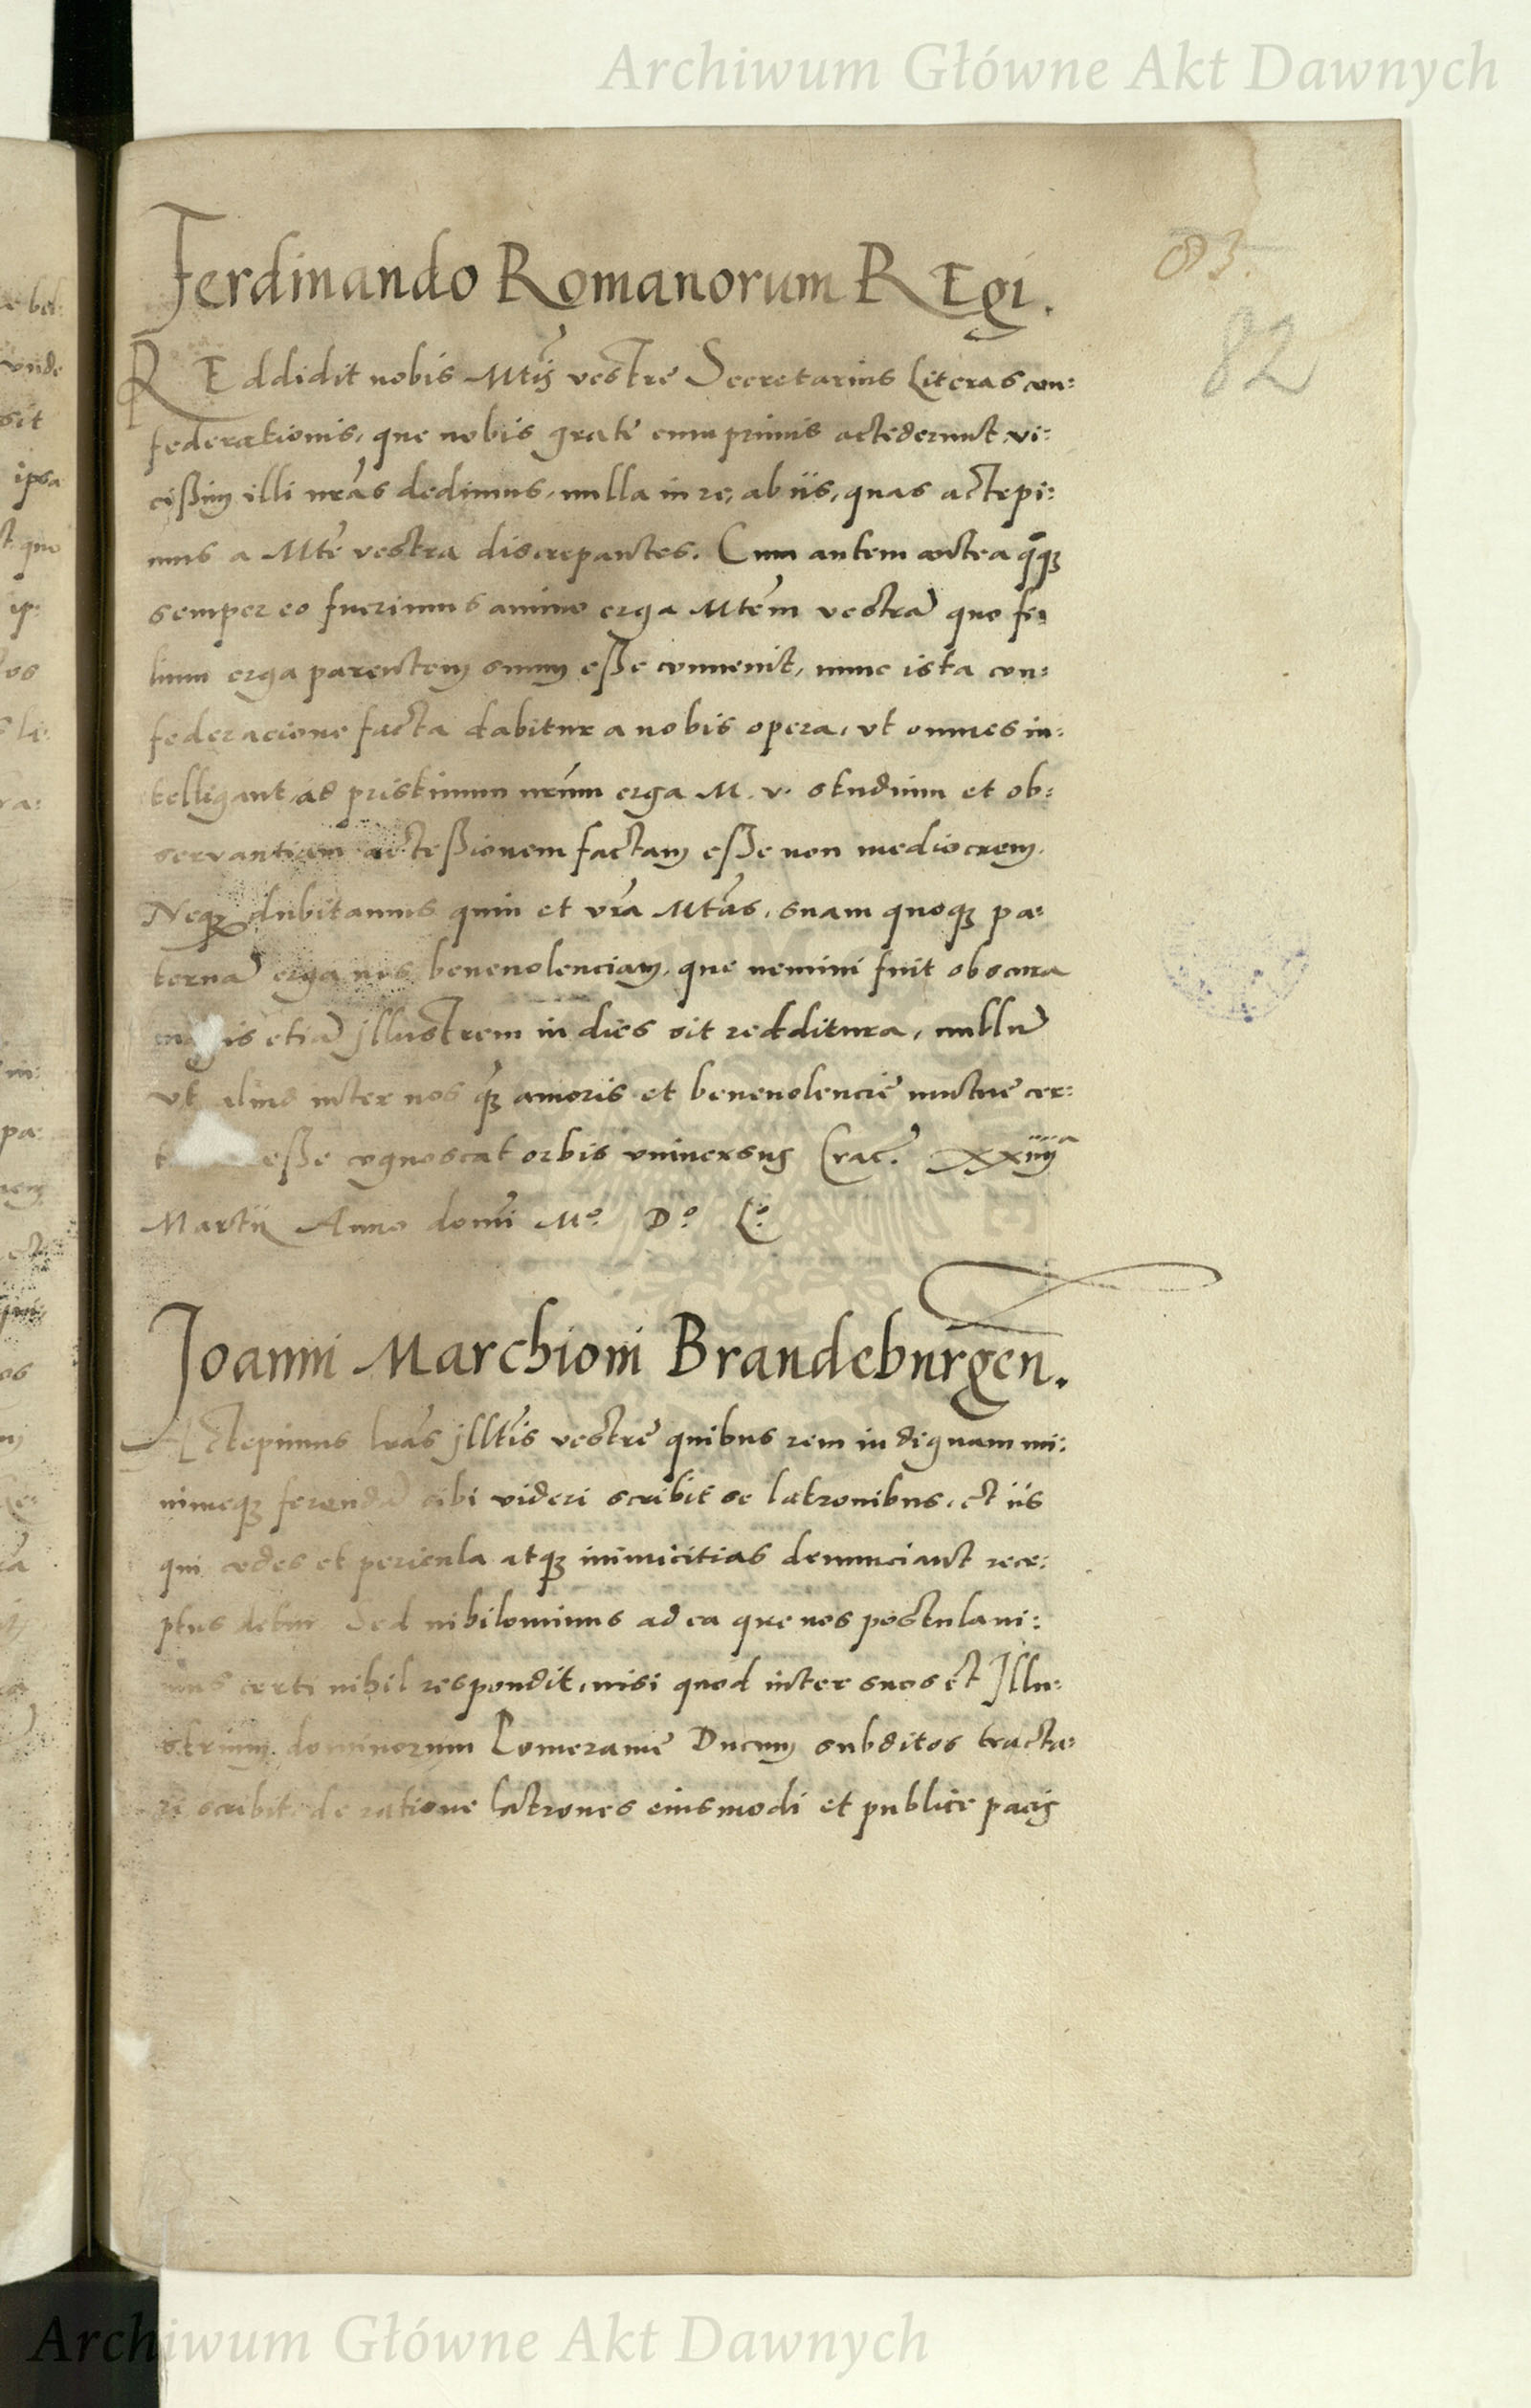 Archiwum Główne Akt Dawnych
83.
82
Ferdinando Romanorum REgi.
REddidit nobis Mtis vestre Secretarius Literas con:
federationis, que nobis grate cum primis accederunt, vi:
cissim illi nrãs dedimus, nulla in re, ab iis, quas accepi:
mus a Mte vestra discrepantes. Cum autem antea q̃q3
semper eo fuerimus animo erga Mtem vestrã quo fi:
lium erga parentem suum esse convenit, nunc ista con:
federacione facta dabitur a nobis opera, vt omnes in:
telligant, ad pristinum nrũm erga M. v. studium et ob:
servantiam accessionem factam esse non mediocrem.
Neq3 dubitamus quin et vrã Mtãs, suam quoq3 pa:
ternã erga nos benevolenciam, que nemini fuit obscura
is etiã jllustrem in dies sit redditura, nullũ
vt aliud inter nos q̃3 amoris et benevolencie mutue cer:
esse cognoscat orbis universus Crac. xxiiija
Martij Anno domi Mo. Do. Lo.
Joanni Marchioni Brandeburgen.
Accepimus lrãs jlltis vestre quibus rem indignam mi:
nimeq3 ferendã sibi videri scribit se latronibus, et iis
qui cedes et pericula atq3 inimicitias denunciant rece:
ptus detur Sed nihilominus ad ea que nos postulavi:
mus certi nihil respondit, nisi quod inter suos et Illu:
strium dominorum Pomeranie Ducum subditos tracta:
ri scribit de ratione latrones eiusmodi et publice pacis
Archiwum Główne Akt Dawnych